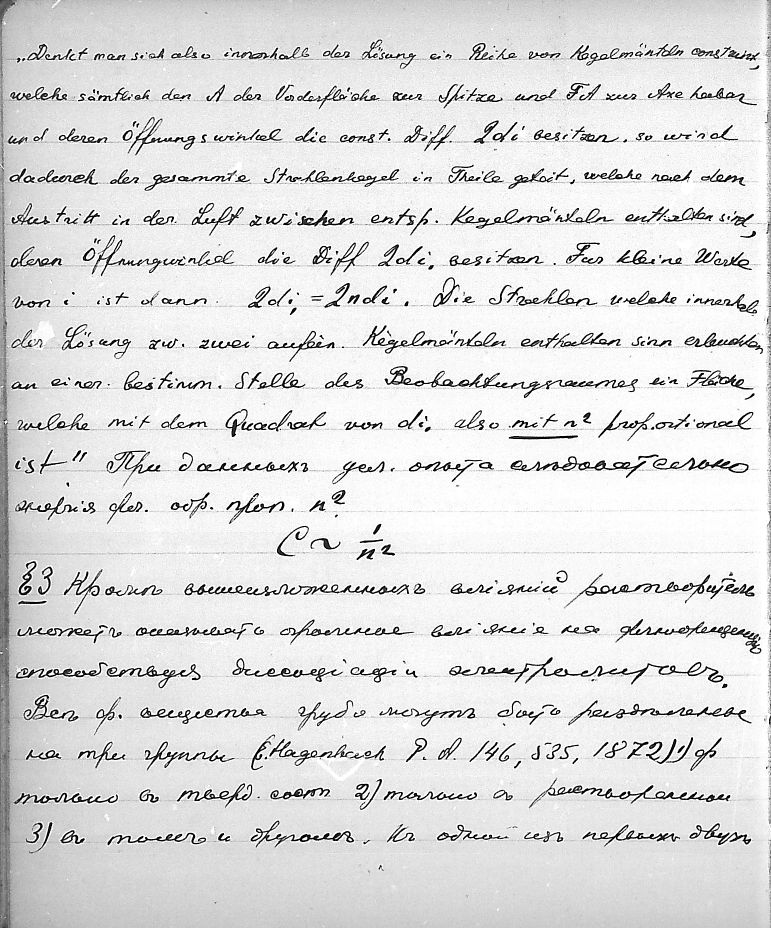 „Denkt man sich also innerhalb der Lösung ein Reihe von Kegelmänteln construirt,
welche sämtlich den A der Vorderfläche zur Spitze und FA zur Axe haben
und deren Öffnungswinkel die const. Diff. 2di besitzen, so wird
dadurch der gesammte Strahlenkegel in Theile geteit, welche nach dem
Austritt in der Luft zwischen entsp. Kegelmänteln enthalten sind,
deren Öffnungwinkel die Diff 2di, besitzen. Für kleine Werte
von i ist dann 2di, = 2ndi. Die Strahlen welche innerhalb
der Lösung zw. zwei aufein. Kegelmänteln enthalten sinn erleuchten
an einer bestimm. Stelle des Beobachtungsraumes ein Fläche,
welche mit dem Quadrat von di, also mit n² proportional
ist" При данныхъ усл. опыта слѣдовательно
энергія фл. обр. проп. n²
C ~ 1/n²
§3 Кромѣ вышеизложенныхъ вліяній растворитель
можетъ оказывать огромное вліяніе на флюоресценцію
способствуя диссоціаціи электролитовъ.
Всѣ ф. вещества грубо могутъ быть раздѣлены
на три группы (E. Hagenbach P. A. 146, 535, 1872) 1) ф
только въ тверд. сост 2) только въ растворенном
3) въ томъ и другомъ. Къ одной изъ первыхъ двухъ